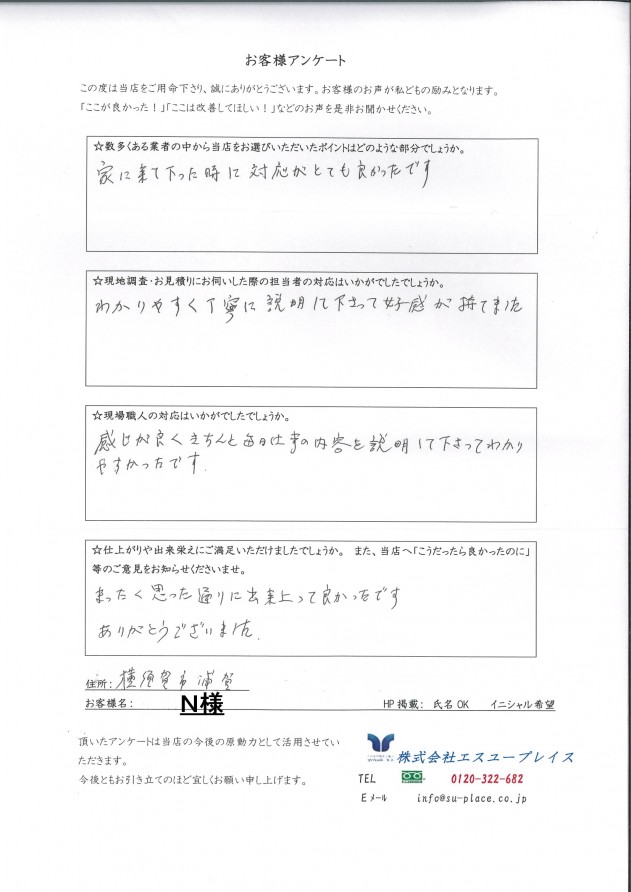 お客様アンケート
この度は当店をご用命下さり、誠にありがとうございます。お客様のお声が私どもの励みとなります。
「ここが良かった！」「ここは改善してほしい！」などのお声を是非お聞かせください。
☆数多くある業者の中から当店をお選びいただいたポイントはどのような部分でしょうか。
家に来て下った時に対応がとても良かったです
☆現地調査・お見積りにお伺いした際の担当者の対応はいかがでしたでしょうか。
わかりやすく丁寧に説明して下さって好感が持てました
☆現場職人の対応はいかがでしたでしょうか。
感じが良くきちんと毎日仕事の内容を説明して下さってわかり
やすかったです.
☆仕上がりや出来栄えにご満足いただけましたでしょうか。 また、当店へ「こうだったら良かったのに」
等のご意見をお知らせくださいませ。
まったく思った通りに出来上って良かったです
ありがとうございました.
住所: 横須賀市浦賀
お客様名: N様 HP掲載: 氏名OK イニシャル希望
頂いたアンケートは当店の今後の原動力として活用させてい
ただきます。
今後ともお引き立てのほど宜しくお願い申し上げます。
株式会社エスユープレイス
TEL 0120-322-682
Eメール info@su-place.co.jp